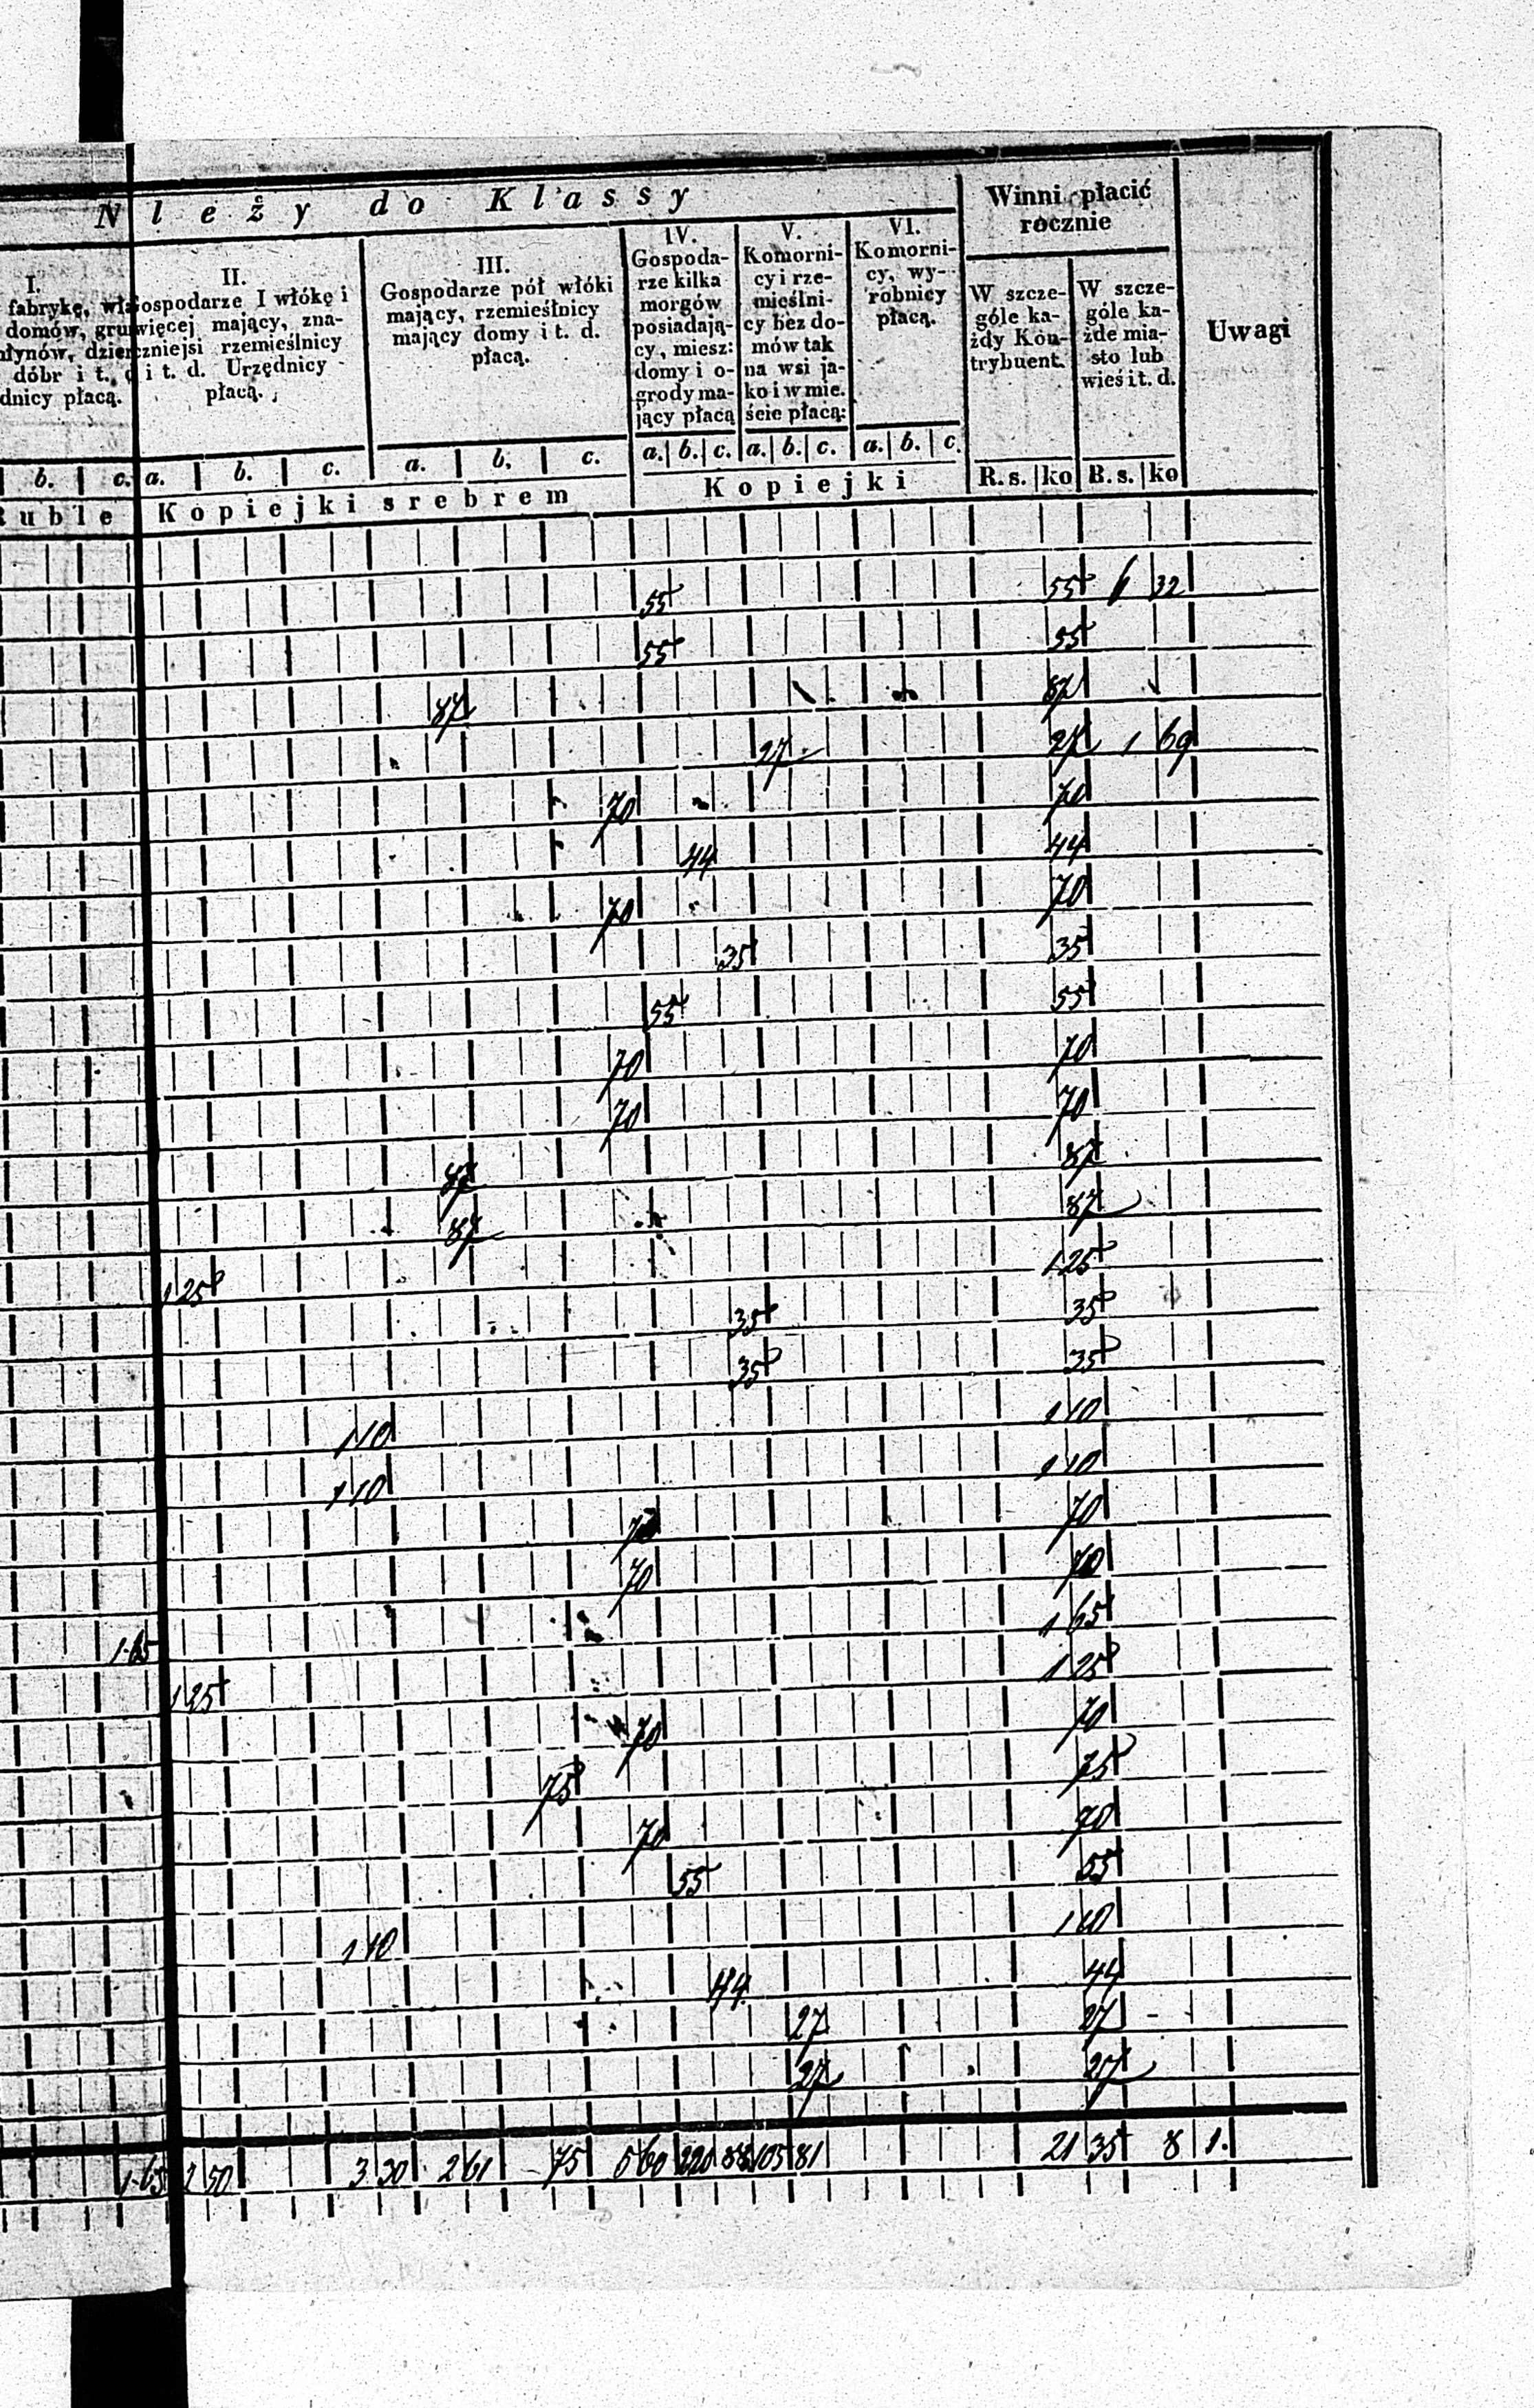 N l e ż y do K l a s s y
Winni płacić
rocznie
I.
fabrykę, wła
domów, grun
młynów, dzier
dóbr i t.
dnicy płacą.
II.
Gospodarze I włókę i
więcej mający, zna-
czniejsi rzemieślnicy
i t. d. Urzędnicy
płacą.
III.
Gospodarze pół włóki
mający, rzemieślnicy
mający domy i t. d.
płacą.
IV.
Gospoda-
rze kilka
morgów
posiadają-
cy, miesz:
domy i o-
grody ma-
jący płacą
V.
Komorni-
cy i rze-
mieślni-
cy bez do-
mów tak
na wsi ja-
ko i w mie.
ście płacą:
VI.
Komorni-
cy, wy-
robnicy
płacą.
W szcze-
góle ka-
żdy Kon-
trybuent.
W szcze-
góle ka-
żde mia-
sto lub
wieś i t. d.
Uwagi
b. c. a. b. c. a. b. c. a. b. c. a. b. c. a. b. c. R. s. ko R. s. ko
Ruble Kopiejki srebrem Kopiejki
55 55 6 32
55 55
87 87
27 27 1 69
70 70
44 44
70 70
35 35
55 55
70 70
70 70
87 87
87 87
1 25 1 25
35 35
35 35
1 10 1 10
1 10 1 10
70 70
70 70
1 65 1 65
1 25 1 25
70 70
75 75
70 70
55 55
1 10 1 10
44 44
27 27
27 27
1 65 2 50 3 30 2 61 75 5 60 220 88 105 81 21 35 8 1.